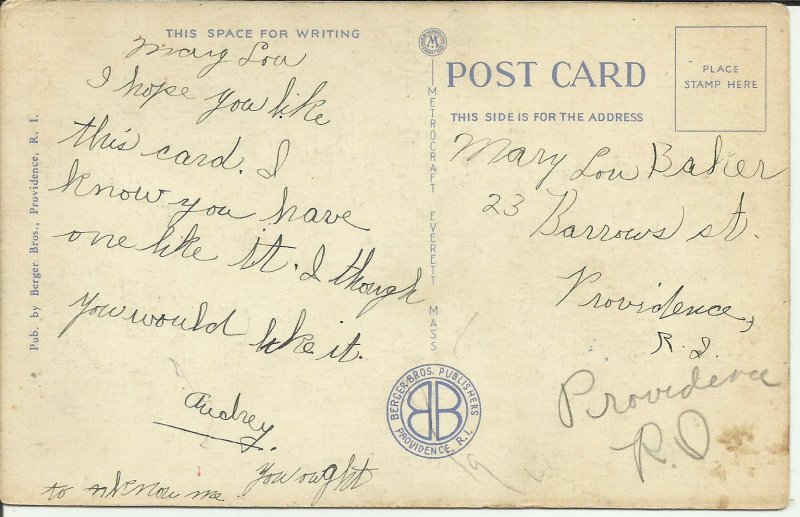 THIS SPACE FOR WRITING
Mary Lou
I hope you like
this card. I
know you have
one like it. I though
you would like it.
Audrey.
You ought
to know me
Pub. by Berger Bros., Providence, R. I.
METROCRAFT EVERETT MASS
M
BERGER BROS. PUBLISHERS
BB
PROVIDENCE, R.I.
POST CARD
THIS SIDE IS FOR THE ADDRESS
PLACE
STAMP HERE
Mary Lou Baker
23 Barrows st.
Providence,
R. I.
Providence
R.I